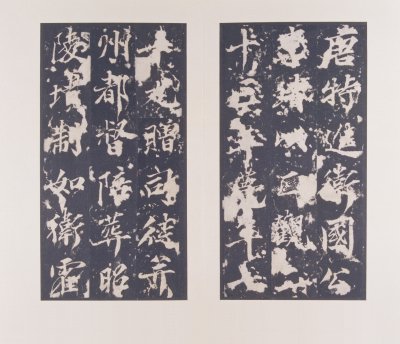 唐特進衛國公
靖以貞觀
年薨年七
十九贈司徒并
州都督陪葬昭
陵墳制如衛霍